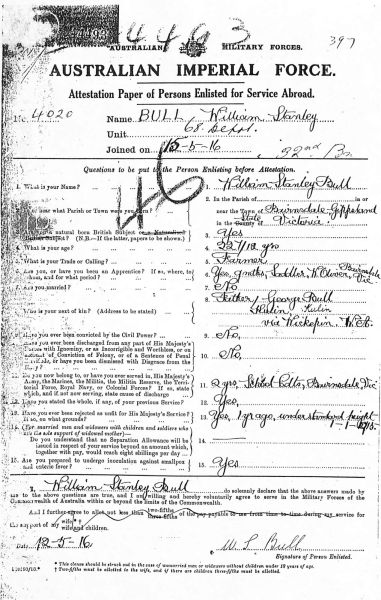 4493
397
AUSTRALIAN MILITARY FORCES.
AUSTRALIAN IMPERIAL FORCE.
Attestation Paper of Persons Enlisted for Service Abroad.
No. 4020 Name BULL William Stanley
Unit 68 Depot.
Joined on 15-5-16 32nd Bn
46
Questions to be put to the Person Enlisting before Attestation.
1. What is your Name? 1. William Stanley Bull
2. In the Parish of
2. In or near what Parish or Town were you born? near the Town of Bairnsdale Gippsland
State
in the County of Victoria
3. natural born British Subject or a Naturalized 3. Yes
British Subject? (N.B.—If the latter, papers to be shown.)
4. What is your age? 4.
5. What is your Trade or Calling? 5. Farmer
6. Are you, or have you been an Apprentice? If so, where, to 6. Yes, Saddler W. Oliver, Bairnsdale
whom, and for what period? Vic
7. Are you married? 7. No
8. Who is your next of kin? (Address to be stated) 8. Father, George Bull
Kulin
via Wickepin W.A.
9. Have you ever been convicted by the Civil Power? 9. No.
10. Have you ever been discharged from any part of His Majesty's
Forces, with Ignominy, or as Incorrigible and Worthless, or on
account of Conviction of Felony, or of a Sentence of Penal
Servitude, or have you been dismissed with Disgrace from the
Navy? 10. No.
11. Do you now belong to, or have you ever served in, His
Majesty's Army, the Marines, the Militia, the Militia Reserve, the Territorial
Force, Royal Navy, or Colonial Forces? If so, state
which, and if not now serving, state cause of discharge 11. 2 yrs School Cdts, Bairnsdale Vic
12. Have you stated the whole, if any, of your previous Service? 12. Yes.
13. Have you ever been rejected as unfit for His Majesty's Service? 13. Yes, 1 yr ago, under standard height
If so, on what grounds? 1-1-1915.
14. (For married men and widowers with children and soldiers who
are the sole support of widowed mother)—
Do you understand that no Separation Allowance will be
issued in respect of your service beyond an amount which,
together with pay, would reach eight shillings per day? 14. —
15. Are you prepared to undergo inoculation against smallpox
and enteric fever? 15. Yes
I, William Stanley Bull do solemnly declare that the above answers made by
me to the above questions are true, and I am willing and hereby voluntarily agree to serve in the Military Forces of the
Commonwealth of Australia within or beyond the limits of the Commonwealth.
*And I further agree to allot not less than two-fifths
three-fifths of the pay payable to me from time to time during my service for
the support of my wife*†
wife and children.
Date 12-5-16 W S Bull
Signature of Person Enlisted.
* This clause should be struck out in the case of unmarried men or widowers without children under 18 years of age.
† Two-fifths must be allotted to the wife, and if there are children three-fifths must be allotted.